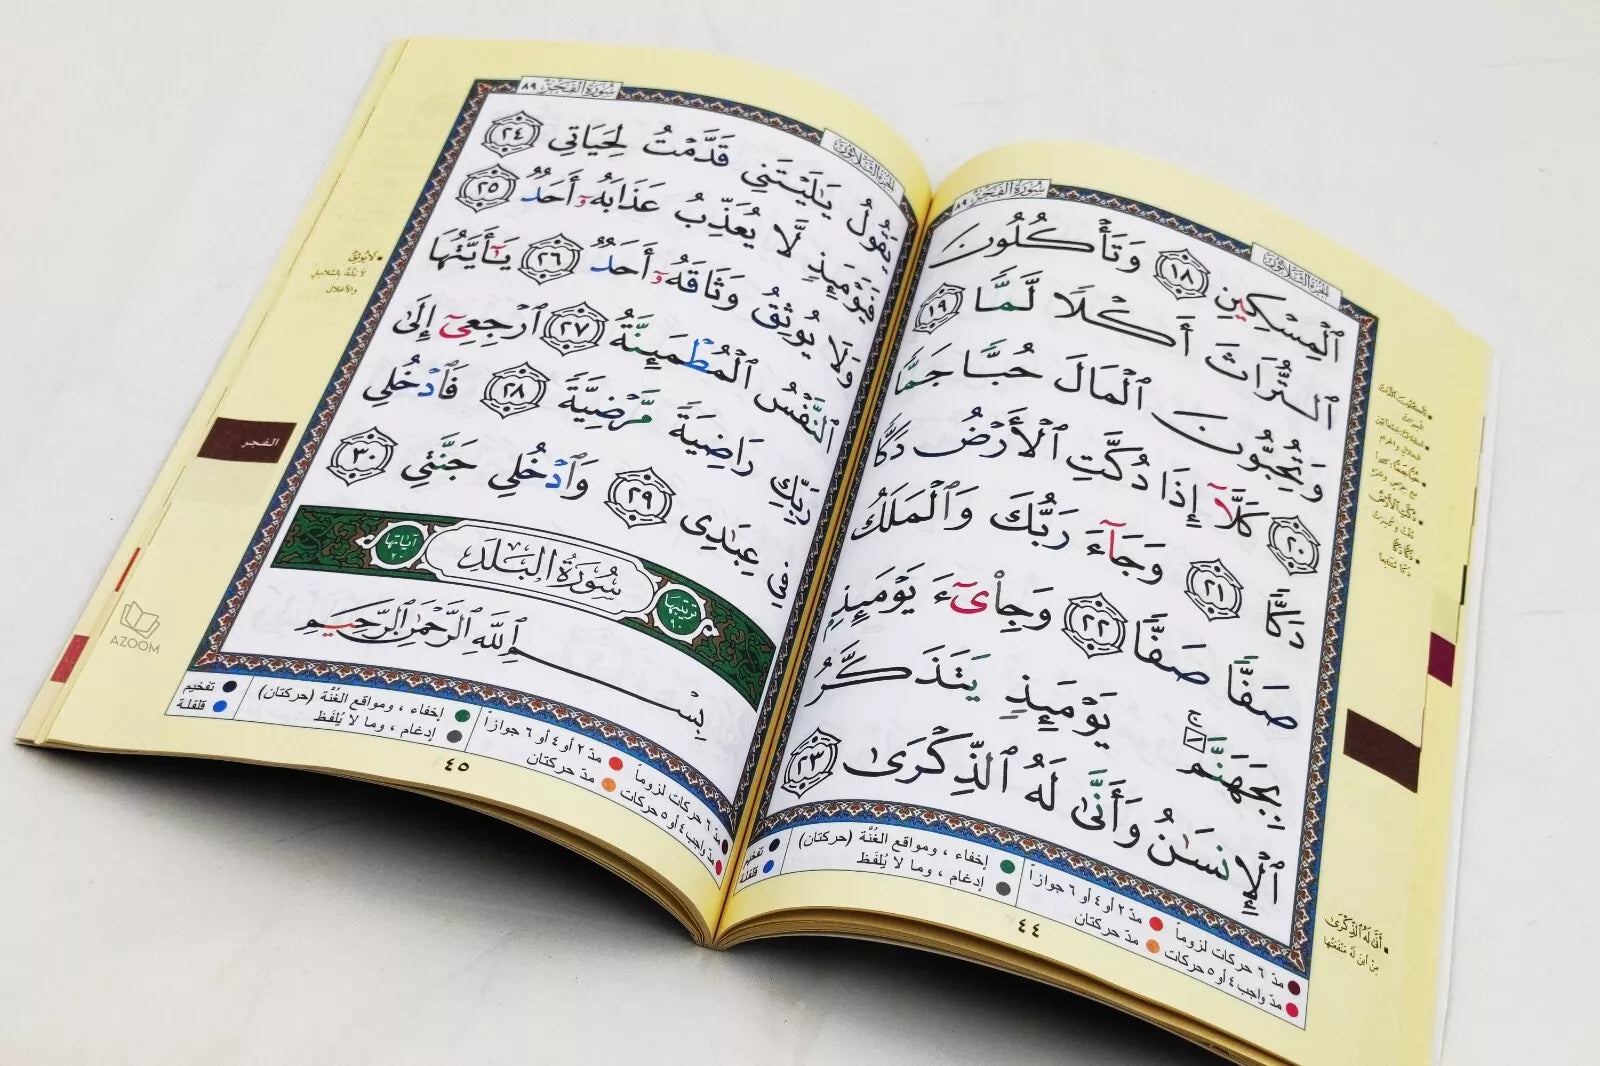 سُورَةُ الفَجْرِ ٨٩
الجزء الثلاثون
ٱلْمِسْكِينِ ١٨ وَتَأْكُلُونَ
ٱلتُّرَاثَ أَكْلًا لَّمًّا ١٩
وَتُحِبُّونَ ٱلْمَالَ حُبًّا جَمًّا
٢٠ كَلَّآ إِذَا دُكَّتِ ٱلْأَرْضُ دَكًّا
دَكًّا ٢١ وَجَآءَ رَبُّكَ وَٱلْمَلَكُ
صَفًّا صَفًّا ٢٢ وَجِا۟ىٓءَ يَوْمَئِذٍۭ
بِجَهَنَّمَ ۚ يَوْمَئِذٍ يَتَذَكَّرُ
ٱلْإِنسَٰنُ وَأَنَّىٰ لَهُ ٱلذِّكْرَىٰ ٢٣
مدّ ٦ حركات لزوماً
مدّ ٢ أو ٤ أو ٦ جوازاً
مدّ واجب ٤ أو ٥ حركات
مدّ حركتان
إخفاء ، ومواقع الغُنَّة (حركتان)
إدغام ، وما لا يُلفَظ
تفخيم
قلقلة
٤٤
أَنَّىٰ لَهُ ٱلذِّكْرَىٰ
مِنْ أين له مَنْفَعتُها
سُورَةُ الفَجْرِ ٨٩
الجزء الثلاثون
يَقُولُ يَٰلَيْتَنِى قَدَّمْتُ لِحَيَاتِى ٢٤
فَيَوْمَئِذٍ لَّا يُعَذِّبُ عَذَابَهُۥٓ أَحَدٌ ٢٥
وَلَا يُوثِقُ وَثَاقَهُۥٓ أَحَدٌ ٢٦ يَٰٓأَيَّتُهَا
ٱلنَّفْسُ ٱلْمُطْمَئِنَّةُ ٢٧ ٱرْجِعِىٓ إِلَىٰ
رَبِّكِ رَاضِيَةً مَّرْضِيَّةً ٢٨ فَٱدْخُلِى
فِى عِبَٰدِى ٢٩ وَٱدْخُلِى جَنَّتِى ٣٠
ترتيبها ٩٠ سُورَةُ البَلَدِ آياتها ٢٠
بِسْمِ ٱللَّهِ ٱلرَّحْمَٰنِ ٱلرَّحِيمِ
مدّ ٦ حركات لزوماً
مدّ ٢ أو ٤ أو ٦ جوازاً
مدّ واجب ٤ أو ٥ حركات
مدّ حركتان
إخفاء ، ومواقع الغُنَّة (حركتان)
إدغام ، وما لا يُلفَظ
تفخيم
قلقلة
٤٥
لا يُوثِقُ
والأغلال
الفجر
AZOOM